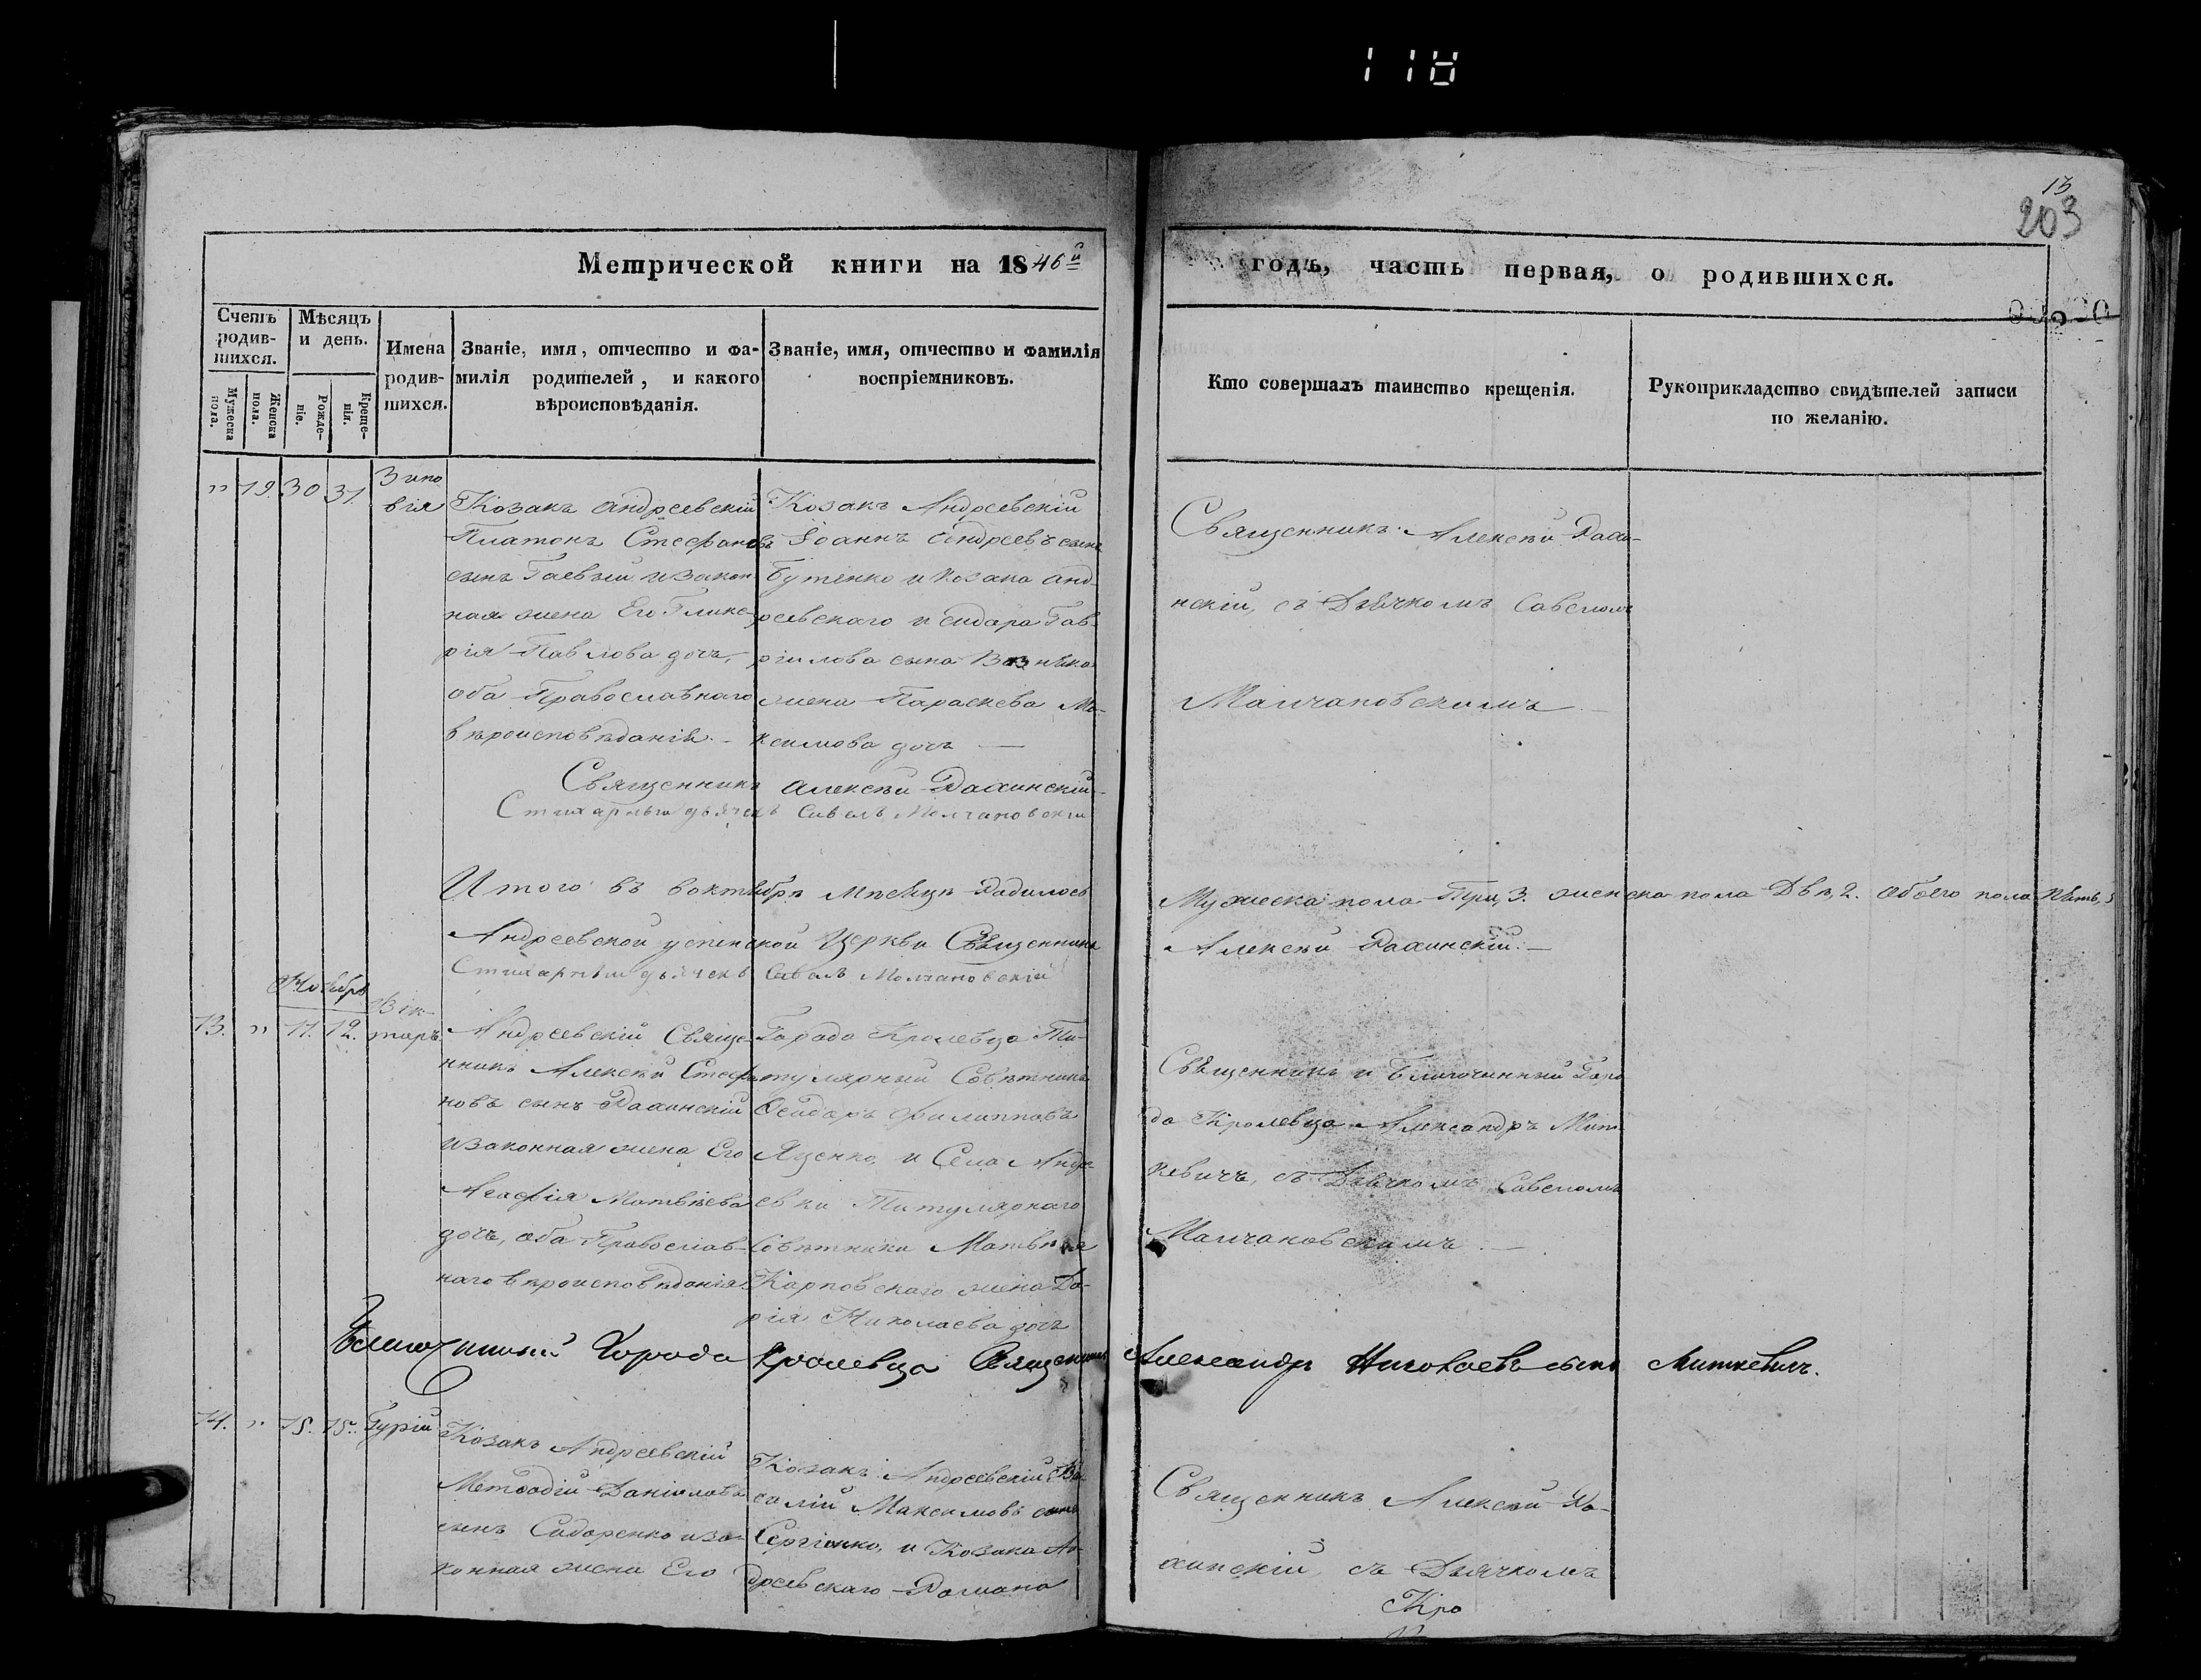 118
13
203
Метрической книги на 1846й
годъ, часть первая, о родившихся.
Счетъ родив-шихся.
Мужеска пола.
Женска пола.
Мѣсяцъ и день.
Рожде-ніе.
Креще-нія.
Имена родив-шихся.
Званіе, имя, отчество и фа-
милія родителей, и какого
вѣроисповѣданія.
Званіе, имя, отчество и фамилія
воспріемниковъ.
Кто совершалъ таинство крещенія.
Рукоприкладство свидѣтелей записи
по желанію.
" 19. 30 31.
Зино
вія
Козакъ Андреевскій
Платонъ Стефановъ
сынъ Гаевый и закон
ная жена Его Глике-
рія Павлова дочь,
оба Православнаго
вѣроисповѣданія. –
Козакъ Андреевскій
Іоаннъ Андреевъ сынъ
Бутенко и козака Анд
реевскаго Исидора Гав-
ріилова сына
жена Параскева Ма-
ксимова дочь —
Священникъ Алексѣй
нскій, съ Дьячкомъ Савелом
Малчановскимъ. –
Священникъ Алексѣй
Стихарный дьячекъ Савелъ Молчановскій
Итого въ воктябрѣ Мпсяцѣ Радилось
Мужеска пола Три, 3. женска пола Двѣ, 2. обоего пола пять, 5
Андреевской успенской Церкви Священникъ
Алексѣй
Стихарный дьячекъ Савелъ Молчановскій
Ноябрь
13. " 11. 12.
Вик-
торъ.
Андреевскій Свяще-
нникъ Алексѣй Стефа
новъ сынъ
и законная жена Его
Агафія Матвѣева
дочь, оба Православ-
наго вѣроисповѣданія
Города Кролевца Ти-
тулярный Совѣтникъ
Филипповъ
Яценко, и Села Андре
евки Титулярнаго
Совѣтника Матвѣя
Карповскаго жена Да-
рія Николаева дочь
Священникъ и Благочинный Горо
да Кролевца Александръ Мит-
кевичъ, съ Дьячкомъ Савеломъ
Малчановскимъ. –
Благочинный Города Кролевца Священникъ Александръ Николаевъ сынъ Миткевичъ.
14. " 15. 15.
Гурій
Козакъ Андреевскій
Меѳодій Даніиловъ
сынъ Сидоренко и за-
конная жена Его
Козакъ Андреевскій Ва-
силій Максимовъ сынъ
Сергіенко, и Козака Ан-
дреевскаго Романа
Священникъ Алексѣй
хинскій, съ Дьячкомъ
Кро